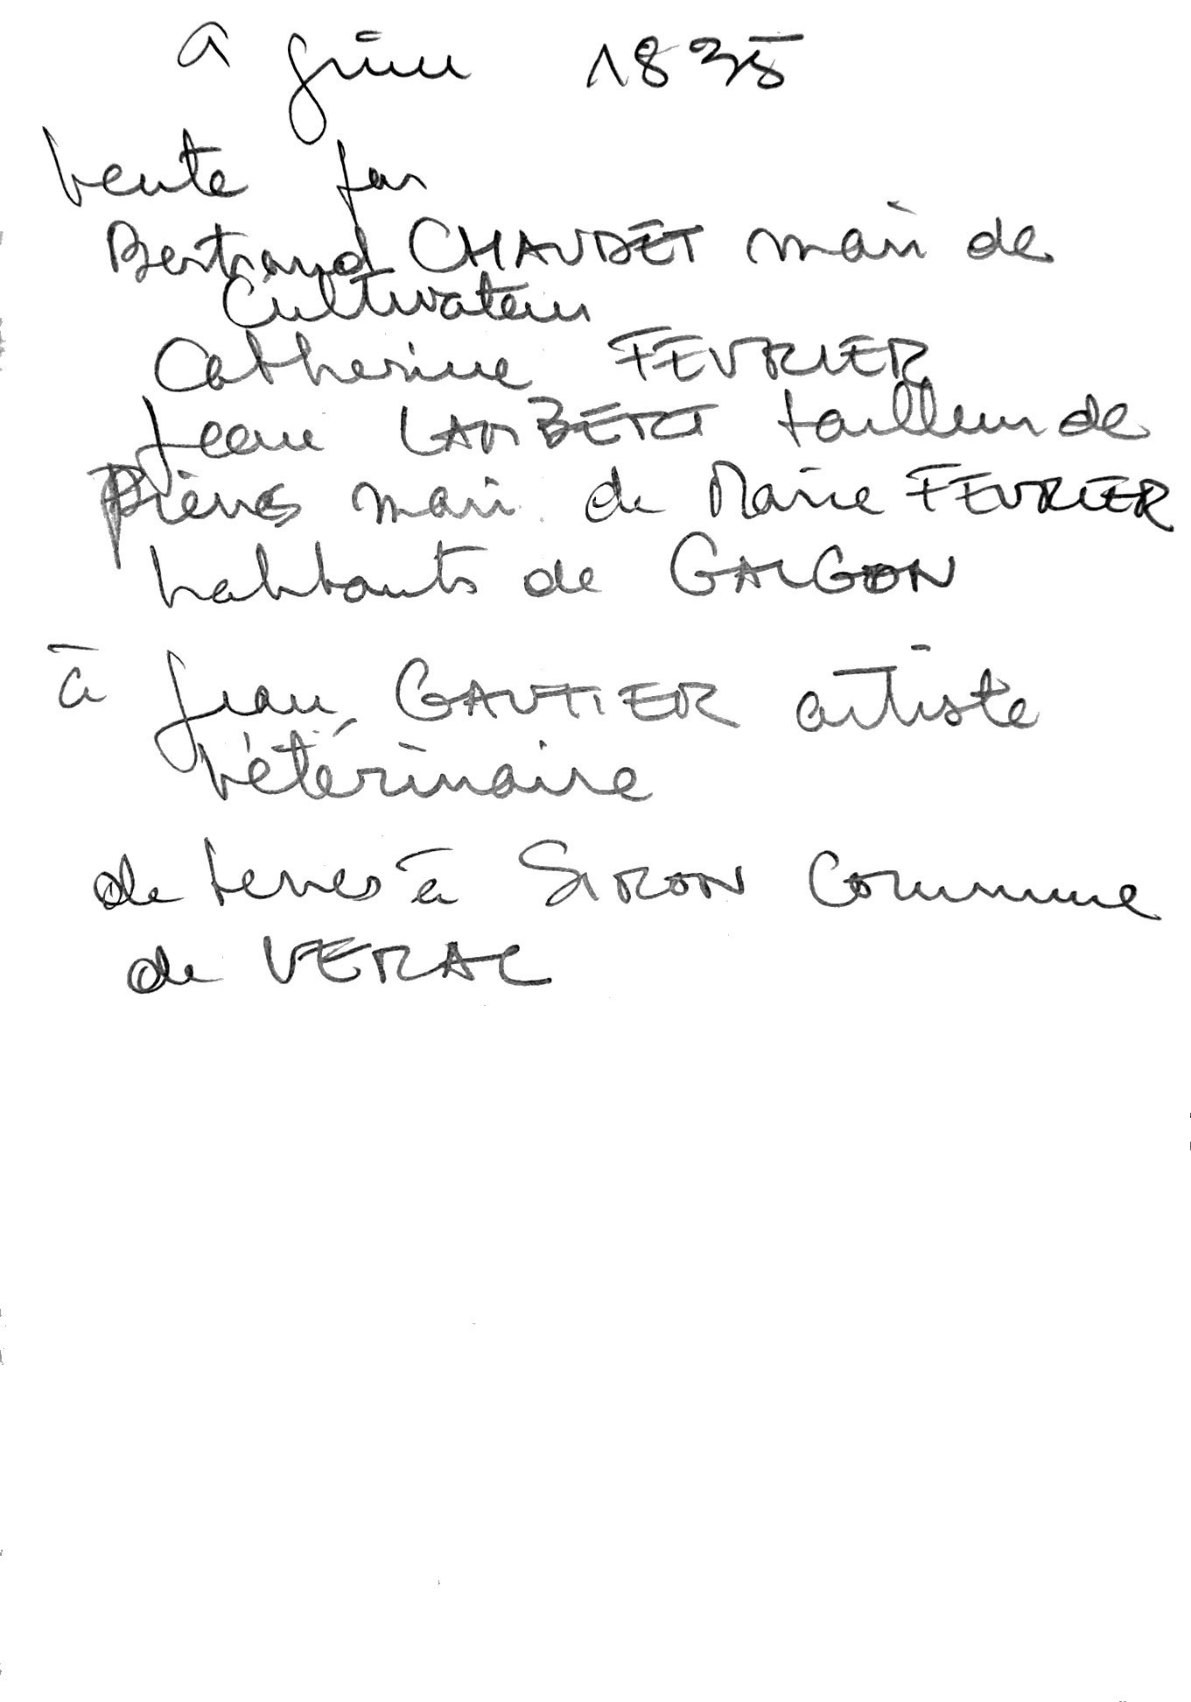 9 juin 1835
vente par
Bertrand CHAUDET mari de
Cultivateur
Catherine FEVRIER
Jean LAMBERT tailleur de
Pierres mari de Marie FEVRIER
habitants de GALGON
à Jean GAUTIER artiste
vétérinaire
de terres à SIRON Commune
de VERAC